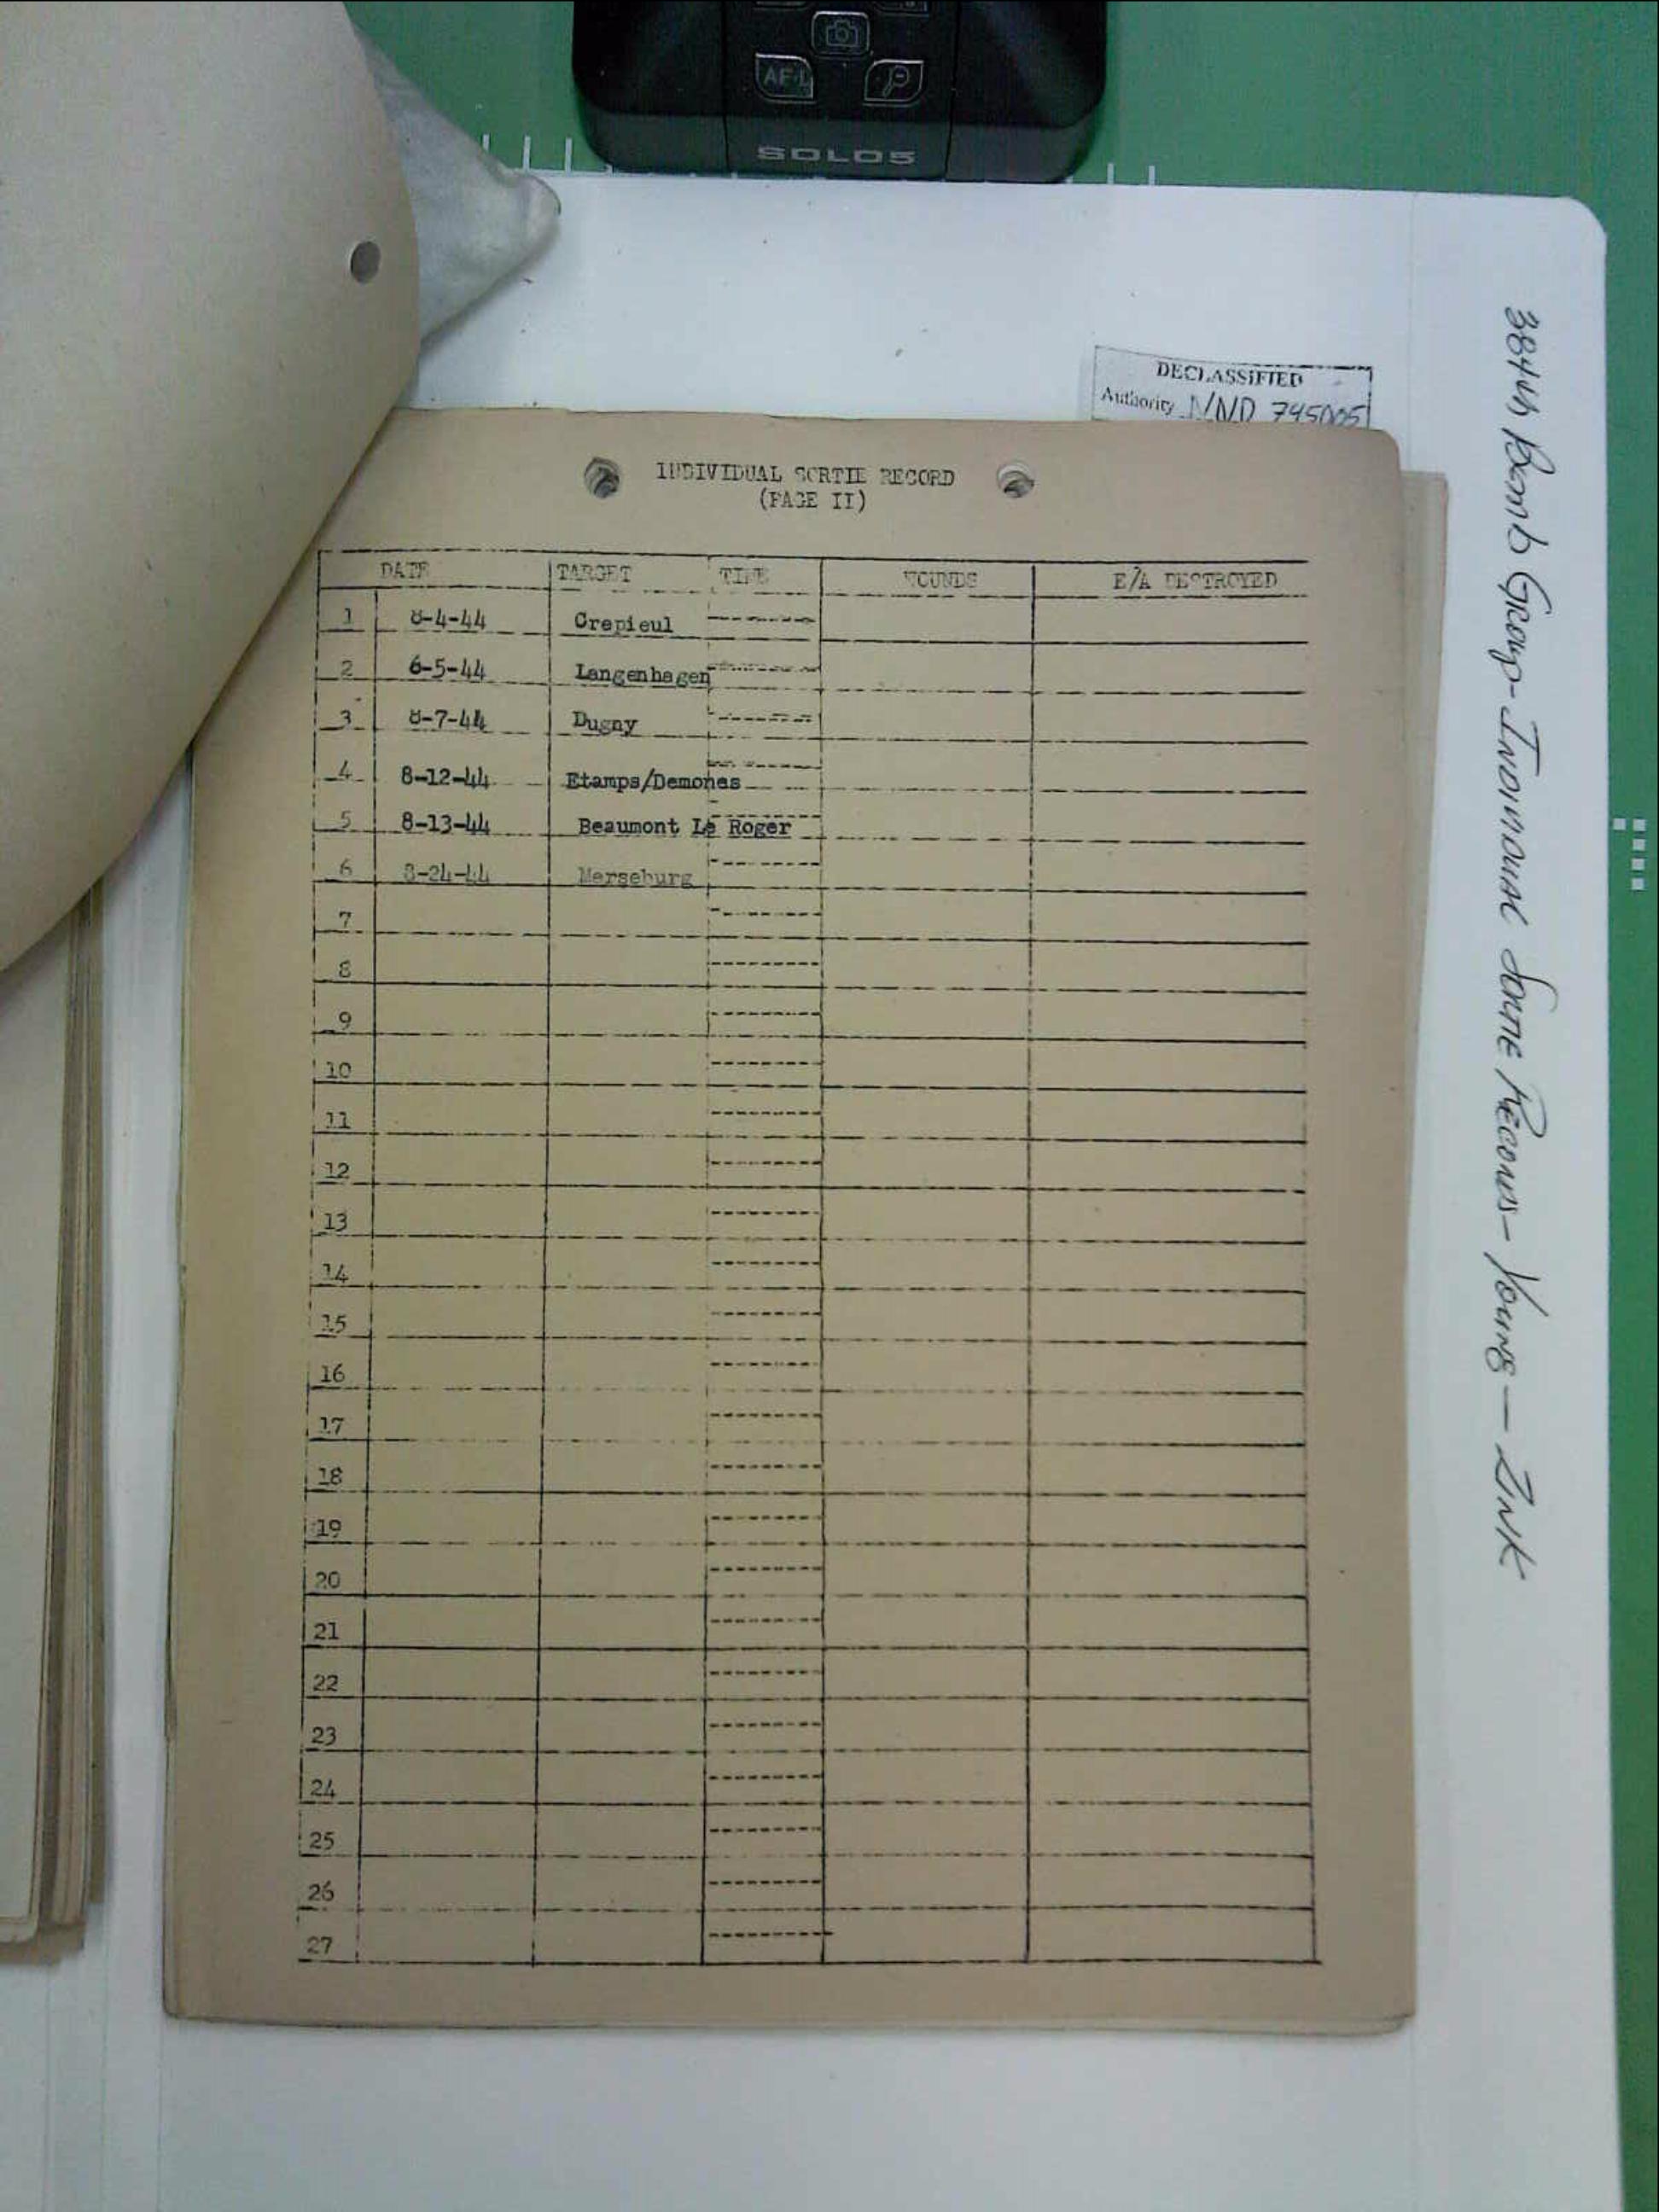 AF-L
SOLO5
DECLASSIFIED
Authority NND 745005
INDIVIDUAL SORTIE RECORD
(PAGE II)
DATE TARGET TIME WOUNDS E/A DESTROYED
1 8-4-44 Crepieul
2 6-5-44 Langenhagen
3 8-7-44 Dugny
4 8-12-44 Etamps/Demones
5 8-13-44 Beaumont Le Roger
6 8-24-44 Merseburg
7
8
9
10
11
12
13
14
15
16
17
18
19
20
21
22
23
24
25
26
27
384th Bomb Group-Individual Sortie Records-Young-Zink